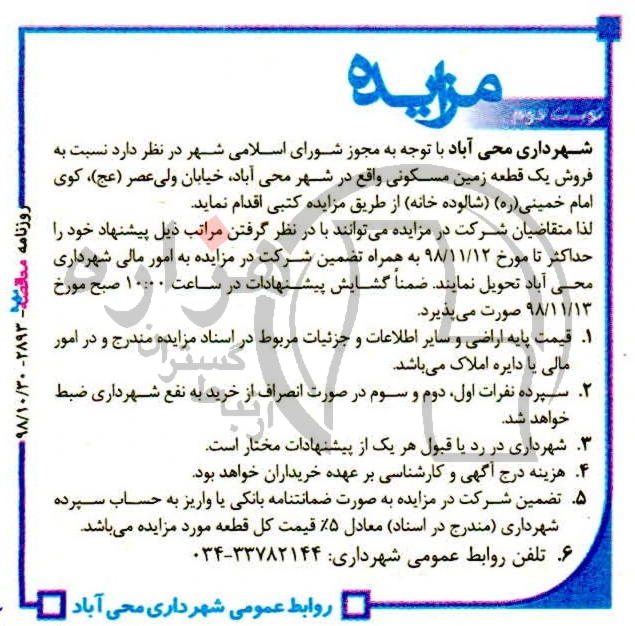 مزایده
نوبت دوم
شهرداری محی آباد با توجه به مجوز شورای اسلامی شهر در نظر دارد نسبت به
فروش یک قطعه زمین مسکونی واقع در شهر محی آباد، خیابان ولی‌عصر (عج)، کوی
امام خمینی(ره) (شالوده خانه) از طریق مزایده کتبی اقدام نماید.
لذا متقاضیان شرکت در مزایده می‌توانند با در نظر گرفتن مراتب ذیل پیشنهاد خود را
حداکثر تا مورخ ۹۸/۱۱/۱۲ به همراه تضمین شرکت در مزایده به امور مالی شهرداری
محی آباد تحویل نمایند. ضمناً گشایش پیشنهادات در ساعت ۱۰:۰۰ صبح مورخ
۹۸/۱۱/۱۳ صورت می‌پذیرد.
۱. قیمت پایه اراضی و سایر اطلاعات و جزئیات مربوط در اسناد مزایده مندرج و در امور
مالی یا دایره املاک می‌باشد.
۲. سپرده نفرات اول، دوم و سوم در صورت انصراف از خرید به نفع شهرداری ضبط
خواهد شد.
۳. شهرداری در رد یا قبول هر یک از پیشنهادات مختار است.
۴. هزینه درج آگهی و کارشناسی بر عهده خریداران خواهد بود.
۵. تضمین شرکت در مزایده به صورت ضمانتنامه بانکی یا واریز به حساب سپرده
شهرداری (مندرج در اسناد) معادل ۵٪ قیمت کل قطعه مورد مزایده می‌باشد.
۶. تلفن روابط عمومی شهرداری: ۳۳۷۸۲۱۴۴-۰۳۴
روابط عمومی شهرداری محی آباد
روزنامه مناقصه -۲۸۹۳- ۹۸/۱۰/۳۰
هزاره
گستران